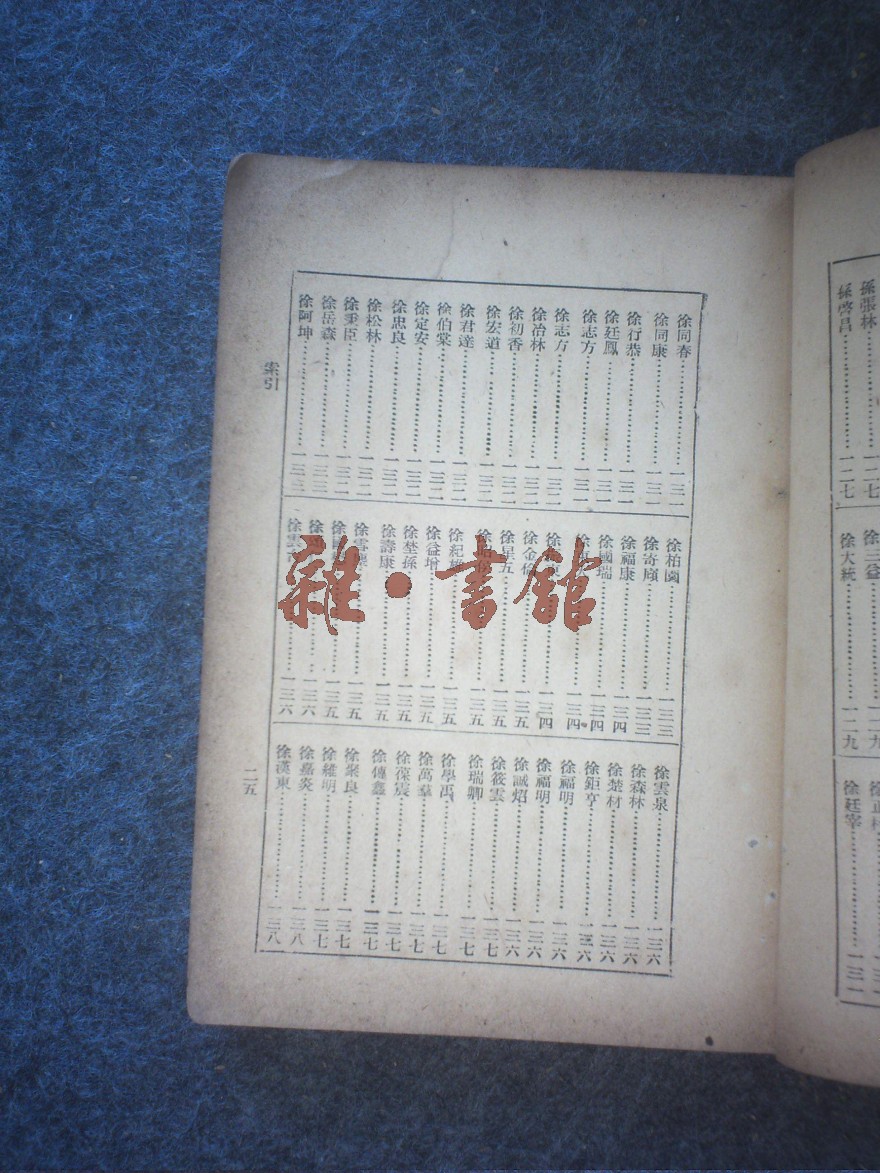 徐同春……一三一
徐同康……一三一
徐行恭……一三一
徐廷鳳……一三一
徐志方……一三一
徐志方……一三二
徐冶林……一三二
徐初香……一三二
徐宏道……一三二
徐君達……一三二
徐伯棠……一三二
徐定安……一三二
徐忠良……一三二
徐松林……一三二
徐秉臣……一三二
徐岳森……一三三
徐阿坤……一三三
徐柏園……一三三
徐寄廎……一三三
徐福康……一三四
徐國瑞……一三四
一三四
一三四
徐金
徐星五……一三五
一三五
徐紀
一三五
徐益增……一三五
徐埜孫……一三五
徐壽康……一三五
徐雪
一三五
一三五
一三六
徐雲
一三六
徐雲泉……一三六
徐森林……一三六
徐楚材……一三六
徐鉅亨……一三六
徐福明……一三六
徐福明……一三六
徐誠炤……一三六
徐筱雲……一三七
徐瑞卿……一三七
徐學禹……一三七
徐萬羣……一三七
徐葆震……一三七
徐傳鑫……一三七
徐聚良……一三七
徐維明……一三七
徐嘉炎……一三八
徐漢東……一三八
索引
二五
孫張林
孫啓昌……一二七
徐三益……一二九
徐大統……一二九
徐正
徐廷宰……一三一
雜·書館